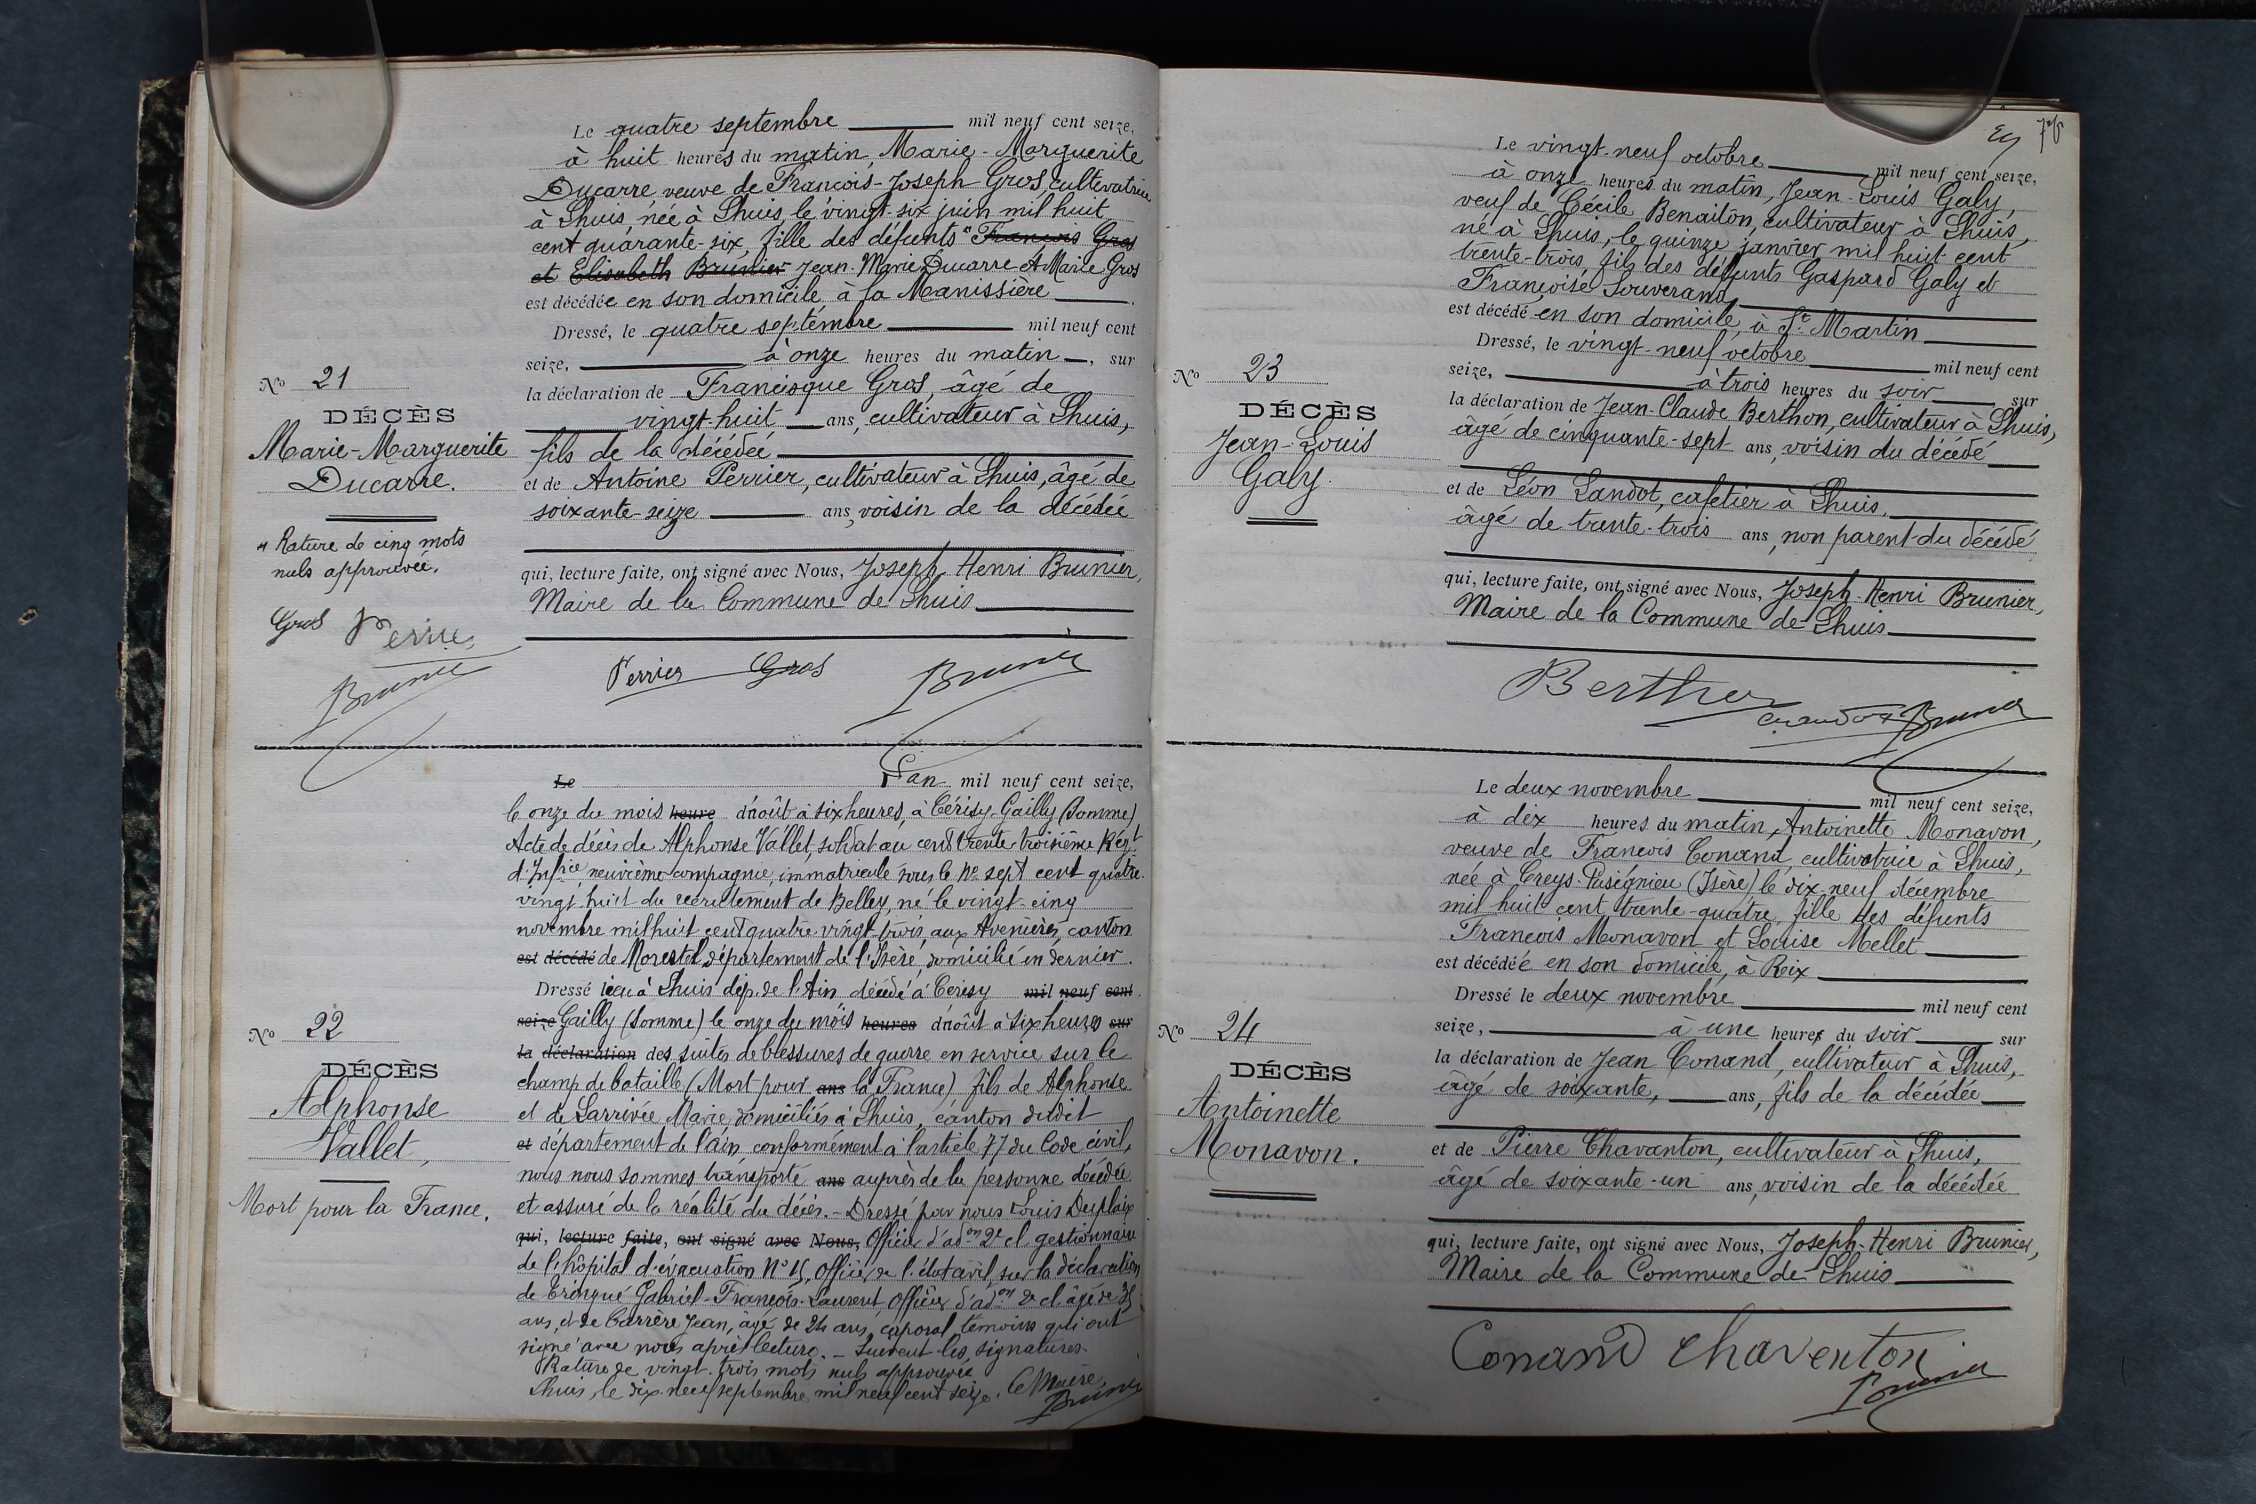 Le quatre septembre mil neuf cent seize,
à huit heures du matin Marie-Marguerite
Ducarre, veuve de François-Joseph Gros, cultivatrice
à Lhuis, née à Lhuis, le vingt-six juin mil huit
cent quarante-six, fille des défunts " François Gros
et Elisabeth Brunier Jean-Marie Ducarre et Marie Gros
est décédée en son domicile, à la Manissière
Dressé, le quatre septembre mil neuf cent
seize, à onze heures du matin, sur
la déclaration de Francisque Gros, âgé de
vingt-huit ans, cultivateur à Lhuis,
fils de la décédée
et de Antoine Perrier, cultivateur à Lhuis, âgé de
soixante-seize ans, voisin de la décédée
qui, lecture faite, ont signé avec Nous, Joseph Henri Brunier,
Maire de la Commune de Lhuis
Perrier Gros Brunier
No 21
DÉCÈS
Marie-Marguerite
Ducarre.
" Rature de cinq mots
nuls approuvée.
Gros Perrier
Brunier
Le L'an mil neuf cent seize,
le onze du mois heure d'août à six heures, à Cérisy-Gailly (Somme)
Acte de décès de Alphonse Vallet, soldat au cent trente troisième Régt
d'Infie neuvième compagnie, immatriculé sous le No sept cent quatre-
vingt huit du recrutement de Belley, né le vingt-cinq
novembre mil huit cent quatre-vingt-trois, aux Avenières, canton
est décédé de Morestel département de l'Isère, domicilié en dernier
Dressé lieu à Lhuis dép. de l'Ain décédé à Cerisy mil neuf cent
seize Gailly (Somme) le onze du mois heures d'août à six heures sur
la déclaration des suites de blessures de guerre en service sur le
champ de bataille (Mort pour ans la France) fils de Alphonse
et de Larrivée Marie, domiciliés à Lhuis, canton dudit
et département de l'Ain, conformément à l'article 77 du Code civil,
nous nous sommes transporté ans auprès de la personne décédée
et assuré de la réalité du décès. - Dressé par nous Louis Duplaix
qui, lecture faite, ont signé avec Nous, Officier d'adon 2e cl gestionnaire
de l'hôpital d'évacuation No 15, officier de l'état civil, sur la déclaration
de Gabriel-François-Laurent officier d'adon 2e cl. âgé de 35
ans, et de Carrère Jean, âgé de 24 ans, caporal témoins qui ont
signé avec nous après lecture. - Suivent les signatures.
Rature de vingt-trois mots nuls approuvée
Lhuis, le dix-neuf septembre mil neuf cent seize. Le Maire,
Brunier
No 22
DÉCÈS
Alphonse
Vallet,
Mort pour la France.
Le vingt-neuf octobre mil neuf cent seize,
à onze heures du matin, Jean-Louis Galy,
veuf de Cécile Benaiton, cultivateur à Lhuis,
né à Lhuis, le quinze janvier mil huit cent
trente-trois, fils des défunts Gaspard Galy et
Françoise Souverand
est décédé en son domicile, à St Martin
Dressé, le vingt-neuf octobre mil neuf cent
seize, à trois heures du soir sur
la déclaration de Jean-Claude Berthon, cultivateur à Lhuis,
âgé de cinquante-sept ans, voisin du décédé
et de Léon Landot, cafetier à Lhuis,
âgé de trente-trois ans, non parent du décédé
qui, lecture faite, ont signé avec Nous, Joseph-Henri Brunier,
Maire de la Commune de Lhuis
Berthon Landot Brunier
No 23
DÉCÈS
Jean-Louis
Galy.
Le deux novembre mil neuf cent seize,
à dix heures du matin, Antoinette Monavon,
veuve de François Conand, cultivatrice à Lhuis,
née à Creys-Pusignieu (Isère) le dix-neuf décembre
mil huit cent trente-quatre, fille des défunts
François Monavon et Louise Mellet
est décédée en son domicile, à Reix
Dressé le deux novembre mil neuf cent
seize, à une heures du soir sur
la déclaration de Jean Conand, cultivateur à Lhuis,
âgé de soixante, ans, fils de la décédée
et de Pierre Chavanton, cultivateur à Lhuis,
âgé de soixante-un ans, voisin de la décédée
qui, lecture faite, ont signé avec Nous, Joseph-Henri Brunier,
Maire de la Commune de Lhuis
Conand Chaventon
Brunier
No 24
DÉCÈS
Antoinette
Monavon.